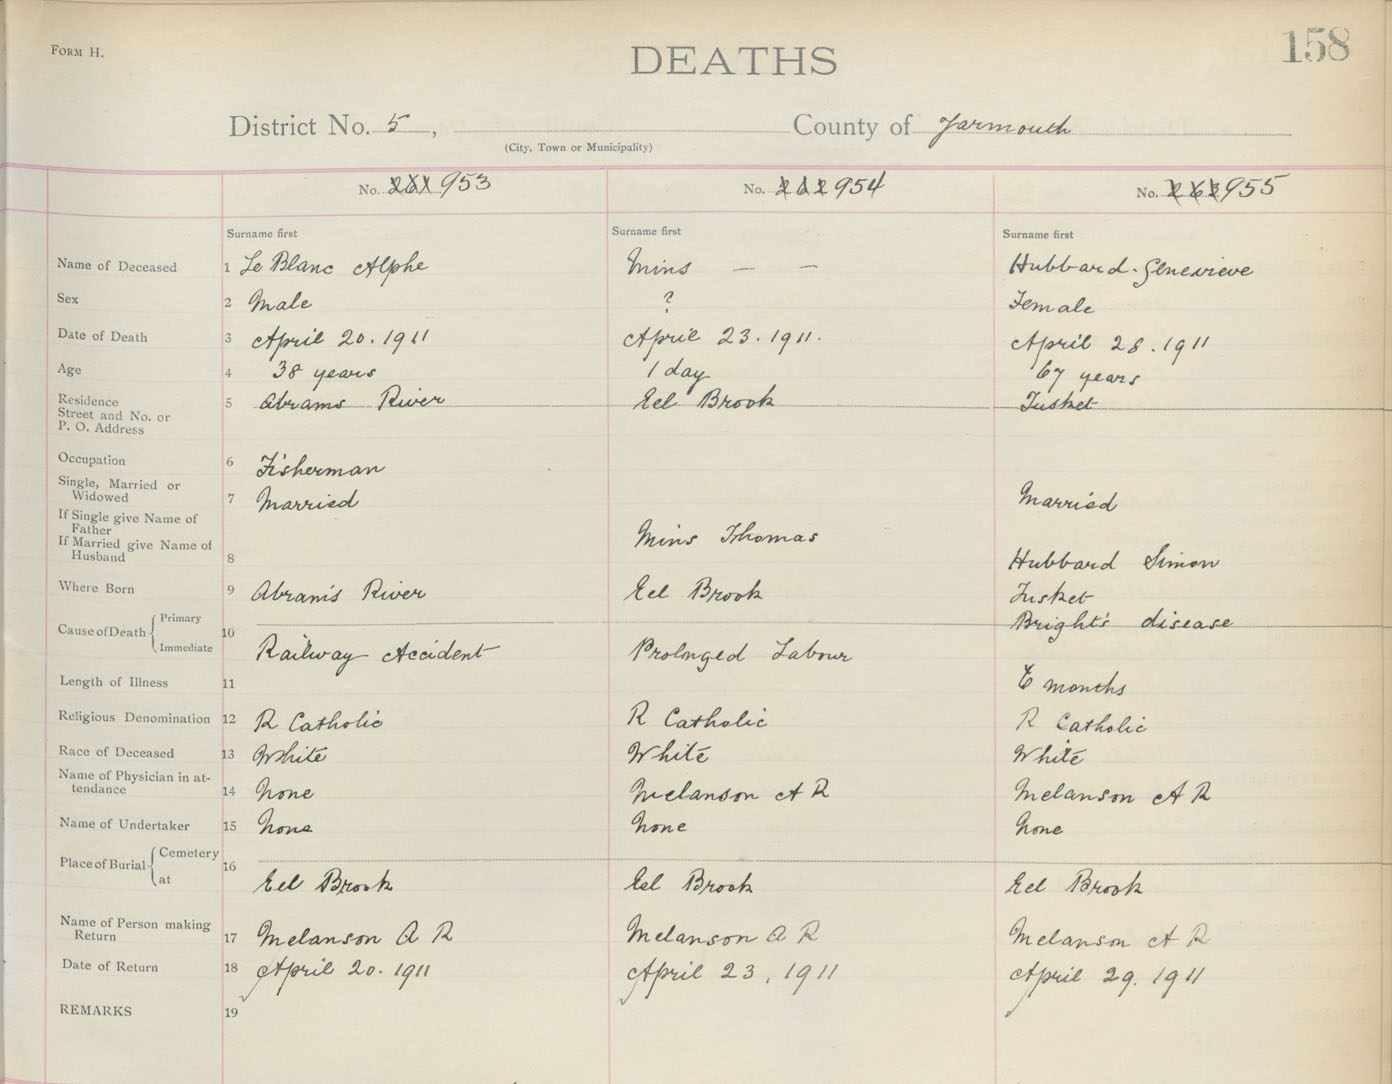 FORM H.
DEATHS
158
District No. 5, County of Yarmouth
(City, Town or Municipality)
No. 261 953 No. 262 954 No. 263 955
Surname first Surname first Surname first
Name of Deceased 1 Le Blanc Alphe Mins — — Hubbard. Genevieve
Sex 2 Male ? Female
Date of Death 3 April 20. 1911 April 23. 1911. April 28. 1911
Age 4 38 years 1 day 67 years
Residence
Street and No. or
P. O. Address
5 Abrams River Eel Brook Tusket
Occupation 6 Fisherman
Single, Married or
Widowed
7 Married Married
If Single give Name of
Father
If Married give Name of
Husband
8 Mins Thomas Hubbard Simon
Where Born 9 Abram's River Eel Brook Tusket
Cause of Death Primary Bright's disease
Immediate
10 Railway Accident Prolonged Labour
Length of Illness 11 6 months
Religious Denomination 12 R Catholic R Catholic R Catholic
Race of Deceased 13 White White White
Name of Physician in at-
tendance
14 None Melanson A R Melanson A R
Name of Undertaker 15 None None None
Place of Burial Cemetery
at
16 Eel Brook Eel Brook Eel Brook
Name of Person making
Return
17 Melanson A R Melanson A R Melanson A R
Date of Return 18 April 20. 1911 April 23, 1911 April 29. 1911
REMARKS 19